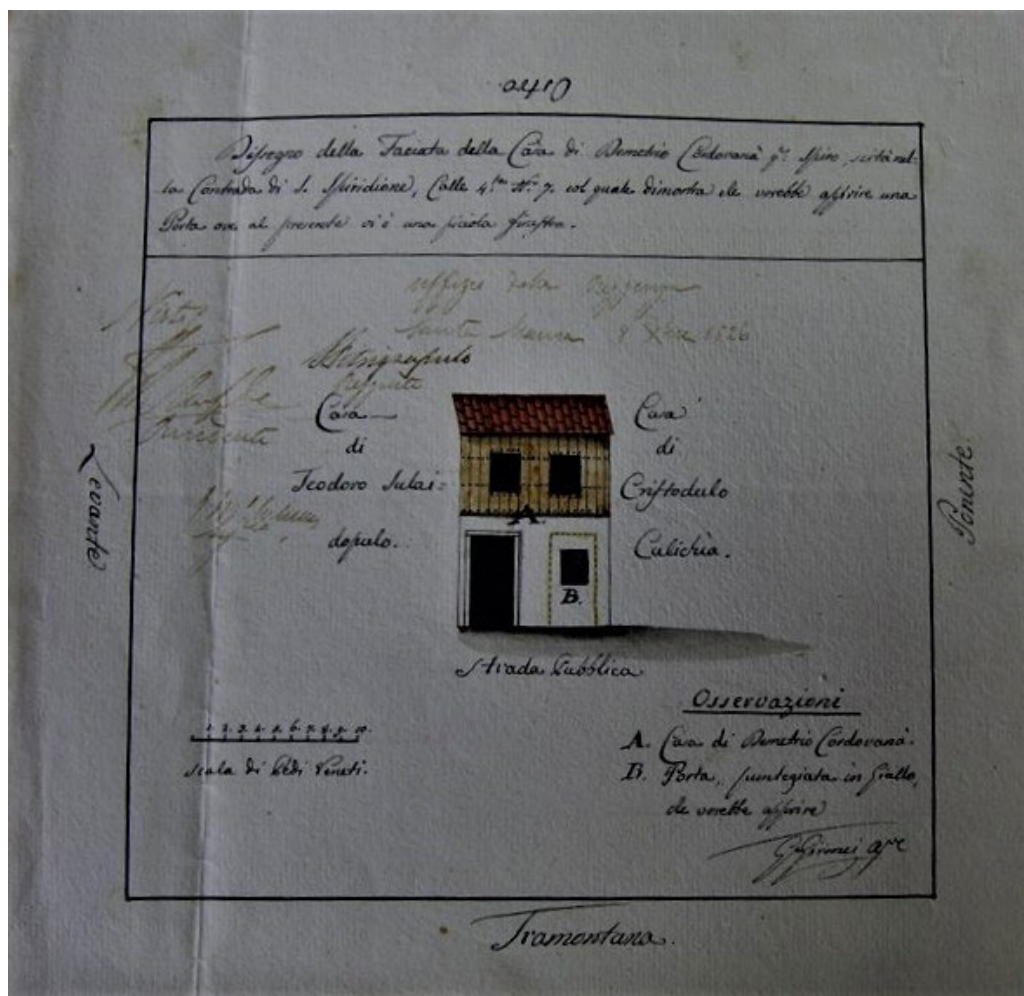 Ostro
Dissegno della Facciata della Casa di Demetrio Cordovanà q.m Spiro, scità nel-
la Contrada di S. Spiridione, Calle 4.ta N.o 7. col quale dimostra che vorebbe apprire una
Porta ove al presente vi è una picciola finestra.
uffizio della Reggenza
Santa Maura 8 Xbre 1826
Reggente
Casa
di
Teodoro Sulai=
dopulo.
Casa
di
Cristodulo
Culichia.
Levante
Ponente
A.
B.
Strada Pubblica
1. 2. 3. 4. 5. 6. 7. 8. 9. 10.
Scala di Piedi Veneti.
Osservazioni
A. Casa di Demetrio Cordovanà.
B. Porta, puntegiata in Giallo,
che vorebbe apprire
Tramontana.